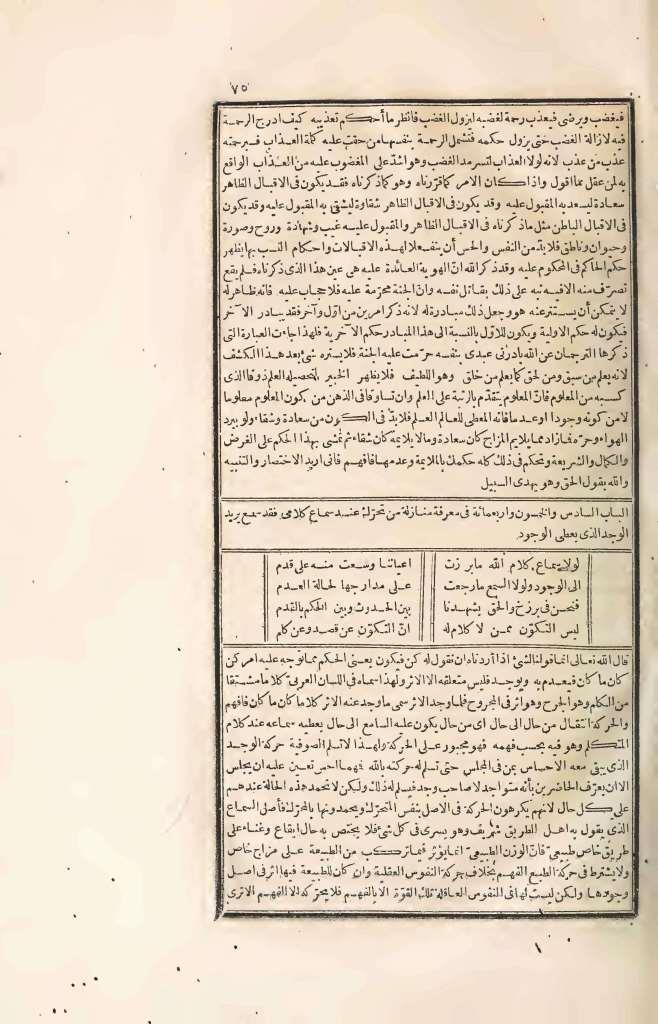 ٧٥
فيغضب ويرضى فيعذب رحمة لغضبه ليزول الغضب فانظر ما أحكم تعذيبه كيف ادرج الرحمة
فيه لازالة الغضب حتى يزول حكمه فتشمل الرحمة بنفسها من حقت عليه كلمة العذاب فبرحمته
عذب من عذب لانه لولا العذاب لتسرمد الغضب وهو اشد على المغضوب عليه من العذاب الواقع
به لمن عقل ما اقول واذا كان الامر كما قررناه وهو كما ذكرناه فقد يكون فى الاقبال الظاهر
سعادة ليسعد به المقبول عليه وقد يكون فى الاقبال الظاهر شقاوة ليشقى به المقبول عليه وقد يكون
فى الاقبال الباطن مثل ما ذكرناه فى الاقبال الظاهر والمقبول عليه غيب وشهادة وروح وصورة
وحيوان وناطق فلا بد من النفس والحس أن ينفعلا لهذه الاقبالات واحكام النسب بها يظهر
حكم الحاكم فى المحكوم عليه وقد ذكر الله ان الهوية العائدة عليه هى عين هذا الذى ذكرناه فلم يقع
تصرف منه الا فيه نبه على ذلك بقاتل نفسه وان الجنة محرمة عليه فلا حجاب عليه فانه ظاهر له
لا يتمكن أن يستتر عنه هو وجعل ذلك مبادرة له لانه ذكر امرين من اول وآخر فقد يبادر الآخر
فيكون له حكم الاولية ويكون للاول بالنسبة الى هذا المبادر حكم الآخرية فلهذا جاءت العبارة التى
ذكرها الترجمان عن الله بادرنى عبدى بنفسه حرمت عليه الجنة فلا يستره شئ بعد هذا الكشف
لانه يعلم من سبق ومن لحق كما يعلم من خلق وهو اللطيف فلا يظهر الخبير لتحصيله العلم ذوقا الذى
كسبه من المعلوم فان المعلوم يتقدم بالرتبة على العلم وان تساوقا فى الذهن من كون المعلوم معلوما
لا من كونه وجودا او عدما فانه المعطى للعالم العلم فلا بد فى الكون من سعادة وشقاء ولو ببرد
الهواء وحره فما زاد مما يلايم المزاج كان سعادة وما لا يلايمه كان شقاء ثم تمشى بهذا الحكم على الغرض
والكمال والشريعة وتحكم فى ذلك كله حكمك بالملايمة وعدمها فافهم فانى اريد الاختصار والتنبيه
والله يقول الحق وهو يهدى السبيل
الباب السادس والخمسون واربعمائة فى معرفة منازلة من تحرك عند سماع كلامى فقد سمع يريد
الوجد الذى يعطى الوجود
لولا سماع كلام الله ما برزت اعياننا وسعت منه على قدم
الى الوجود ولولا السمع ما رجعت على مدارجها لحالة العدم
فنحن فى برزخ والحق يشهدنا بين الحدوث وبين الحكم بالقدم
ليس التكون ممن لا كلام له ان التكون عن قصد وعن كلم
قال الله تعالى انما قولنا لشئ اذا أردناه ان نقول له كن فيكون يعنى الحكم مما توجه عليه امر كن
كان ما كان فيعدم به ويوجد فليس متعلقه الا الاثر ولهذا سماه فى اللسان العربى كلاما مشتقا
من الكلم وهو الجرح وهو اثر فى المجروح فلما وجد الاثر سمى ما وجد عنه الاثر كلاما كان ما كان فافهم
والحركة انتقال من حال الى حال اى من حال يكون عليه السامع الى حال يعطيه سماعه عند كلام
المتكلم وهو فيه بحسب فهمه فهو مجبور على الحركة ولهذا لا تسلم الصوفية حركة الوجد
الذى يبقى معه الاحساس بمن فى المجلس حتى تسلم له حركته بالله فمهما احس تعين عليه ان يجلس
الا ان يعرف الحاضرين بأنه متواجد لا صاحب وجد فيسلم له ذلك ولكن لا تحمد هذه الحالة عندهم
على كل حال لانهم يكرهون الحركة فى الاصل بنفس المتحرك ويحمدونها بالمحرك فأصل السماع
الذى يقول به اهل الطريق شريف وهو يسرى فى كل شئ فلا يختص به حال ايقاع وغناء على
طريق خاص طبيعى فان الوزن الطبيعى انما يؤثر فيما تركب من الطبيعة على مزاج خاص
ولا يشترط فى حركة الطبع الفهم بخلاف حركة النفوس العقلية وان كان للطبيعة فيها اثر فى اصل
وجودها ولكن ليست لها فى النفوس العاقلة تلك القوة الا بالفهم فلا يحركه الا الفهم الا ترى